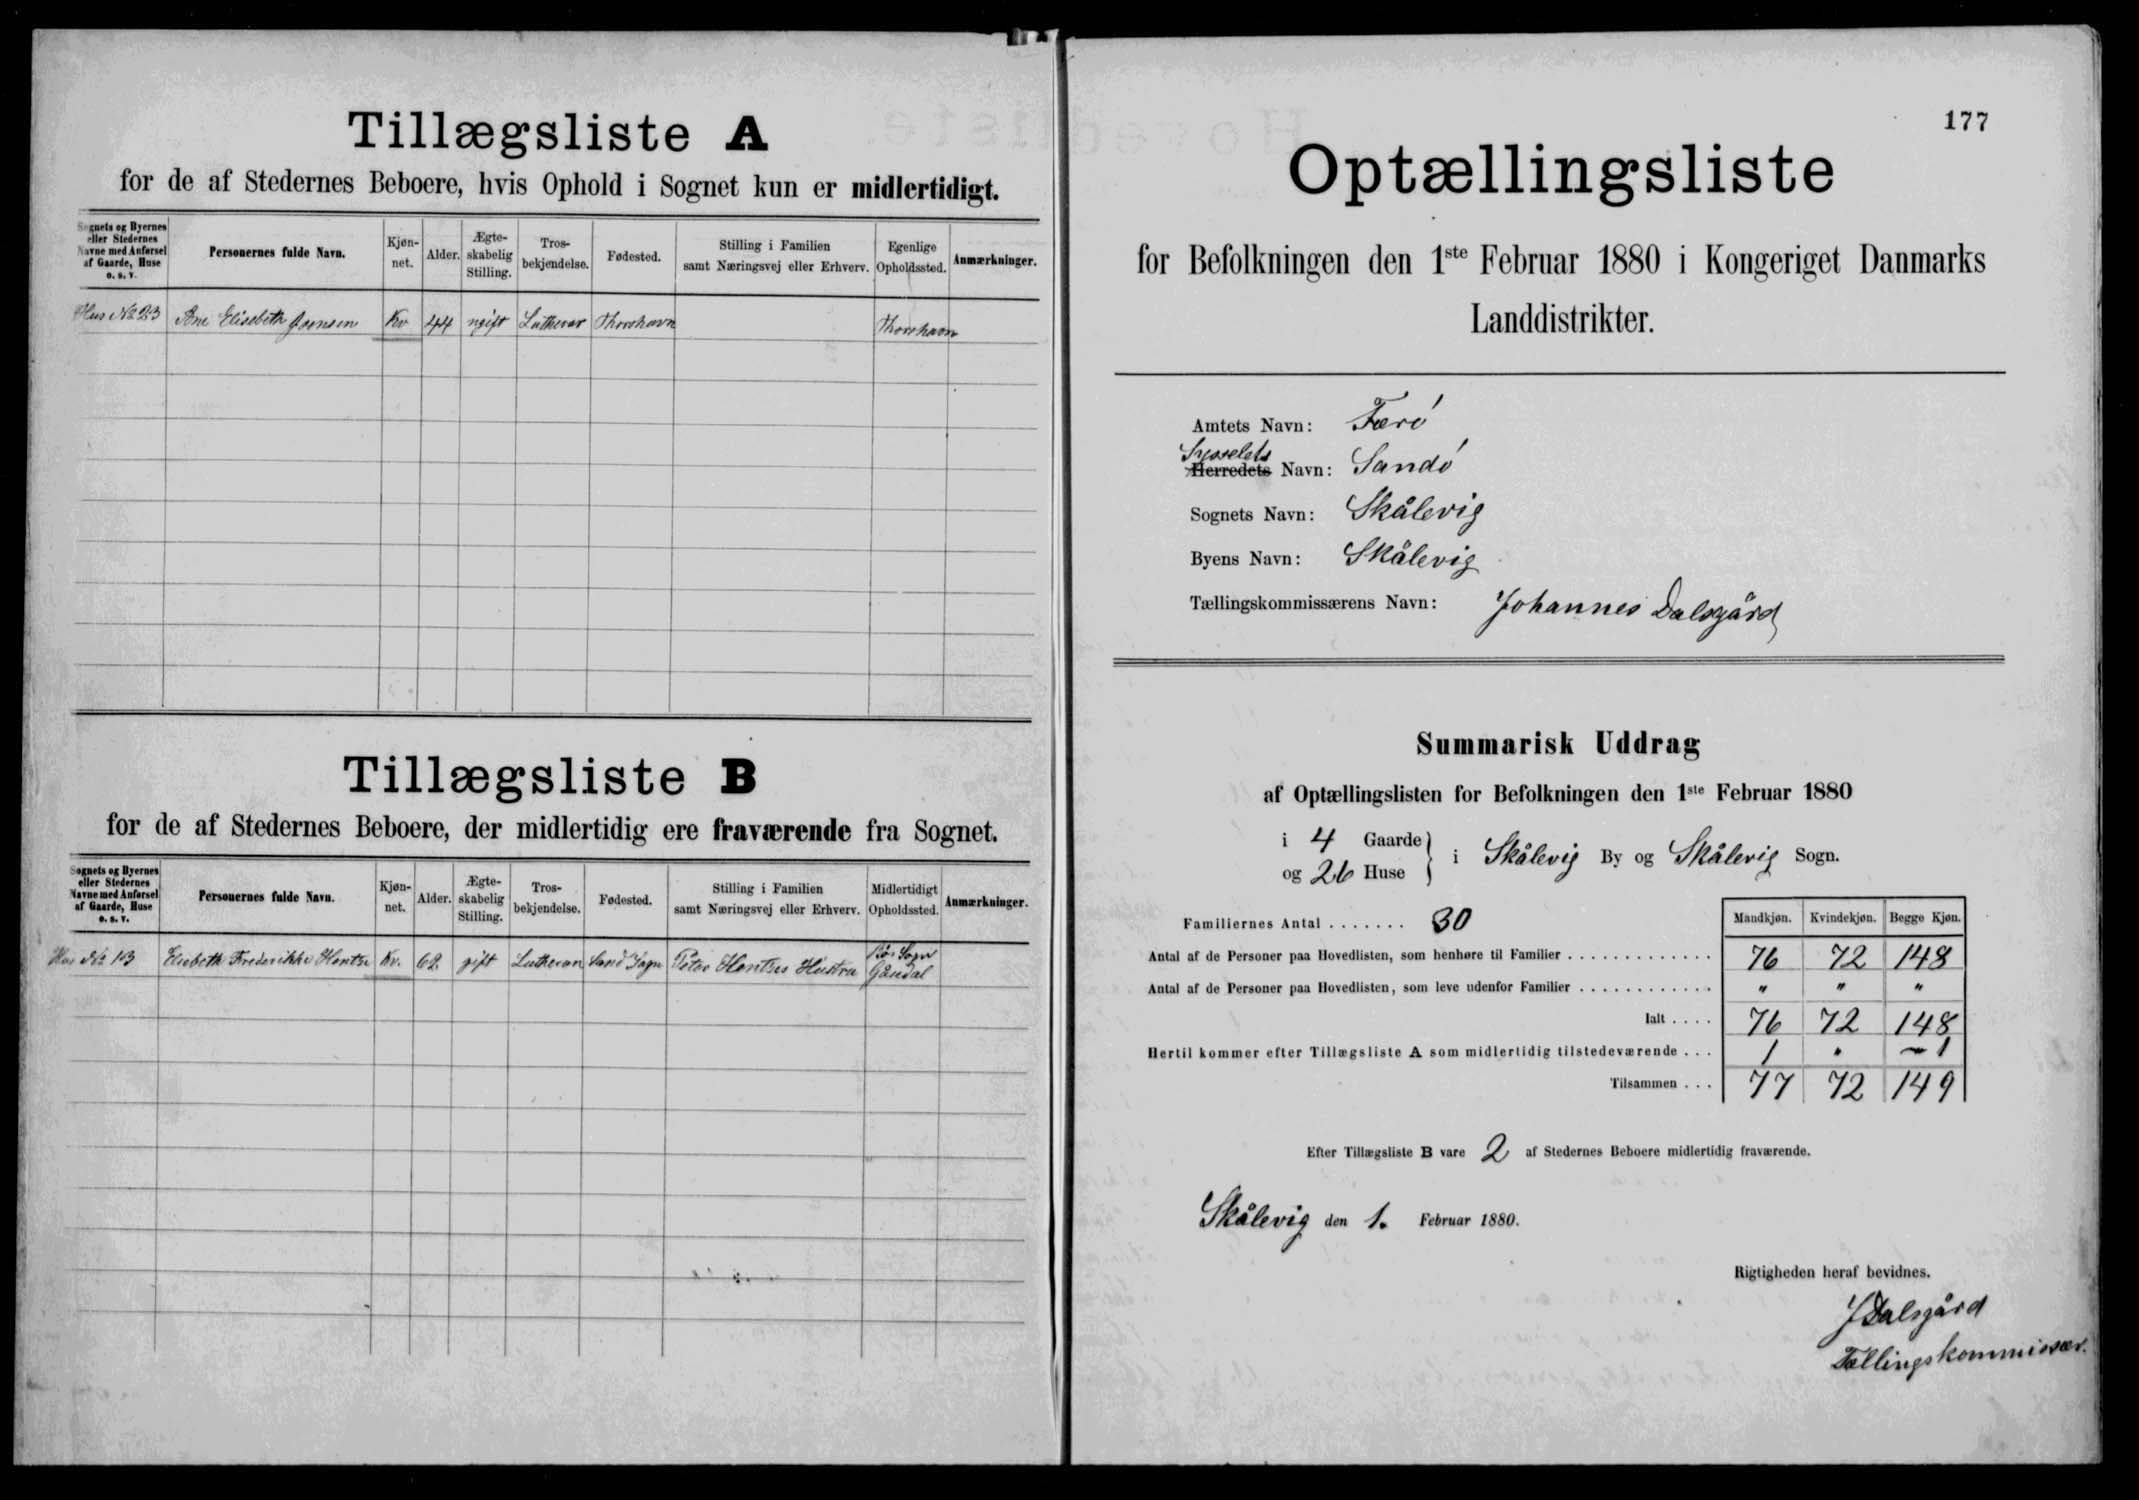 Tillægsliste A
for de af Stedernes Beboere, hvis Ophold i Sognet kun er midlertidigt.
Sognets og Byernes eller Stedernes Navne med Anførsel af Gaarde, Huse o. s. v.
Personernes fulde Navn.
Kjøn-net.
Alder.
Ægte-skabelig Stilling.
Tros-bekjendelse.
Fødested.
Stilling i Familien samt Næringsvej eller Erhverv.
Egenlige Opholdssted.
Anmærkninger.
Hus No 23 Ane Elisabeth Joensen Kv 44 ugift Lutheran Thorshavn Thorshavn
Tillægsliste B
for de af Stedernes Beboere, der midlertidig ere fraværende fra Sognet.
Sognets og Byernes eller Stedernes Navne med Anførsel af Gaarde, Huse o. s. v.
Personernes fulde Navn.
Kjøn-net.
Alder.
Ægte-skabelig Stilling.
Tros-bekjendelse.
Fødested.
Stilling i Familien samt Næringsvej eller Erhverv.
Midlertidigt Opholdssted.
Anmærkninger.
Hus No 13 Elsebeth Frederikke Hentze Kv. 62 gift Lutheran Sand Sogn Peter Hentzes Hustru Sogn Gåsedal
177
Optællingsliste
for Befolkningen den 1ste Februar 1880 i Kongeriget Danmarks
Landdistrikter.
Amtets Navn: Færö
Sysselets
Herredets Navn: Sandö
Sognets Navn: Skålevig
Byens Navn: Skålevig
Tællingskommissærens Navn: Johannes Dalsgård
Summarisk Uddrag
af Optællingslisten for Befolkningen den 1ste Februar 1880
i 4 Gaarde
og 26 Huse
i Skålevig By og Skålevig Sogn.
Mandkjøn. Kvindekjøn. Begge Kjøn.
Familiernes Antal ....... 30
Antal af de Personer paa Hovedlisten, som henhøre til Familier ............. 76 72 148
Antal af de Personer paa Hovedlisten, som leve udenfor Familier ............ " " "
Ialt .... 76 72 148
Hertil kommer efter Tillægsliste A som midlertidig tilstedeværende ... 1 " – 1
Tilsammen ... 77 72 149
Efter Tillægsliste B vare 2 af Stedernes Beboere midlertidig fraværende.
Skålevig den 1. Februar 1880.
Rigtigheden heraf bevidnes.
J Dalsgård
Tællingskommissær.